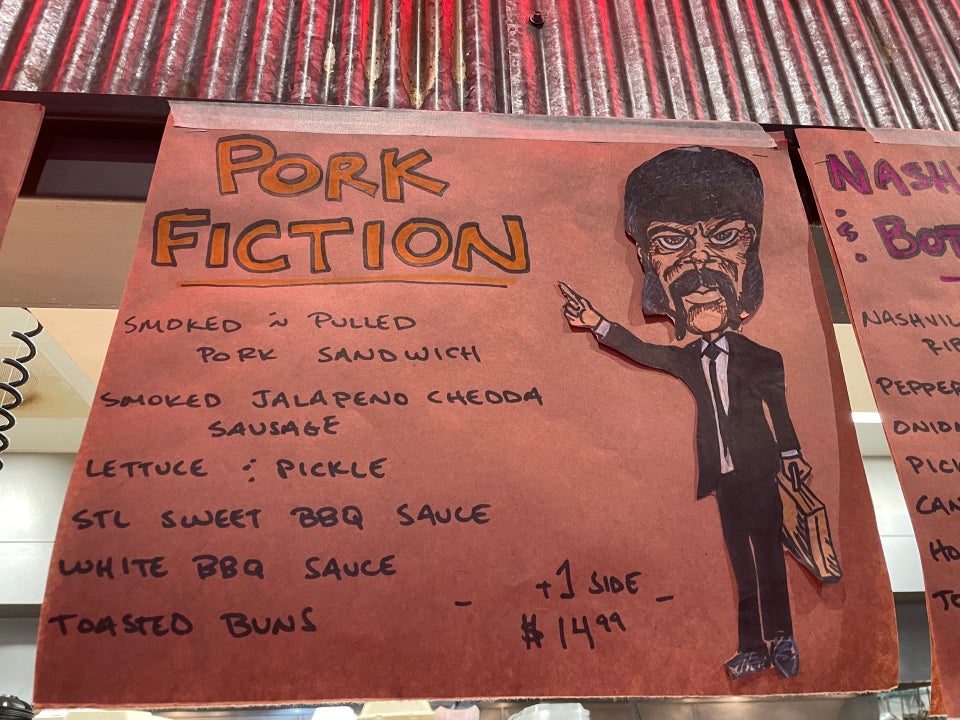 PORK
FICTION
SMOKED 'N PULLED
PORK SANDWICH
SMOKED JALAPENO CHEDDA
SAUSAGE
LETTUCE & PICKLE
STL SWEET BBQ SAUCE
WHITE BBQ SAUCE
TOASTED BUNS
- +1 SIDE -
$14.99
NASH
& BOT
NASHVIL
RIB
PEPPER
ONION
PICK
CAN
HO
TO